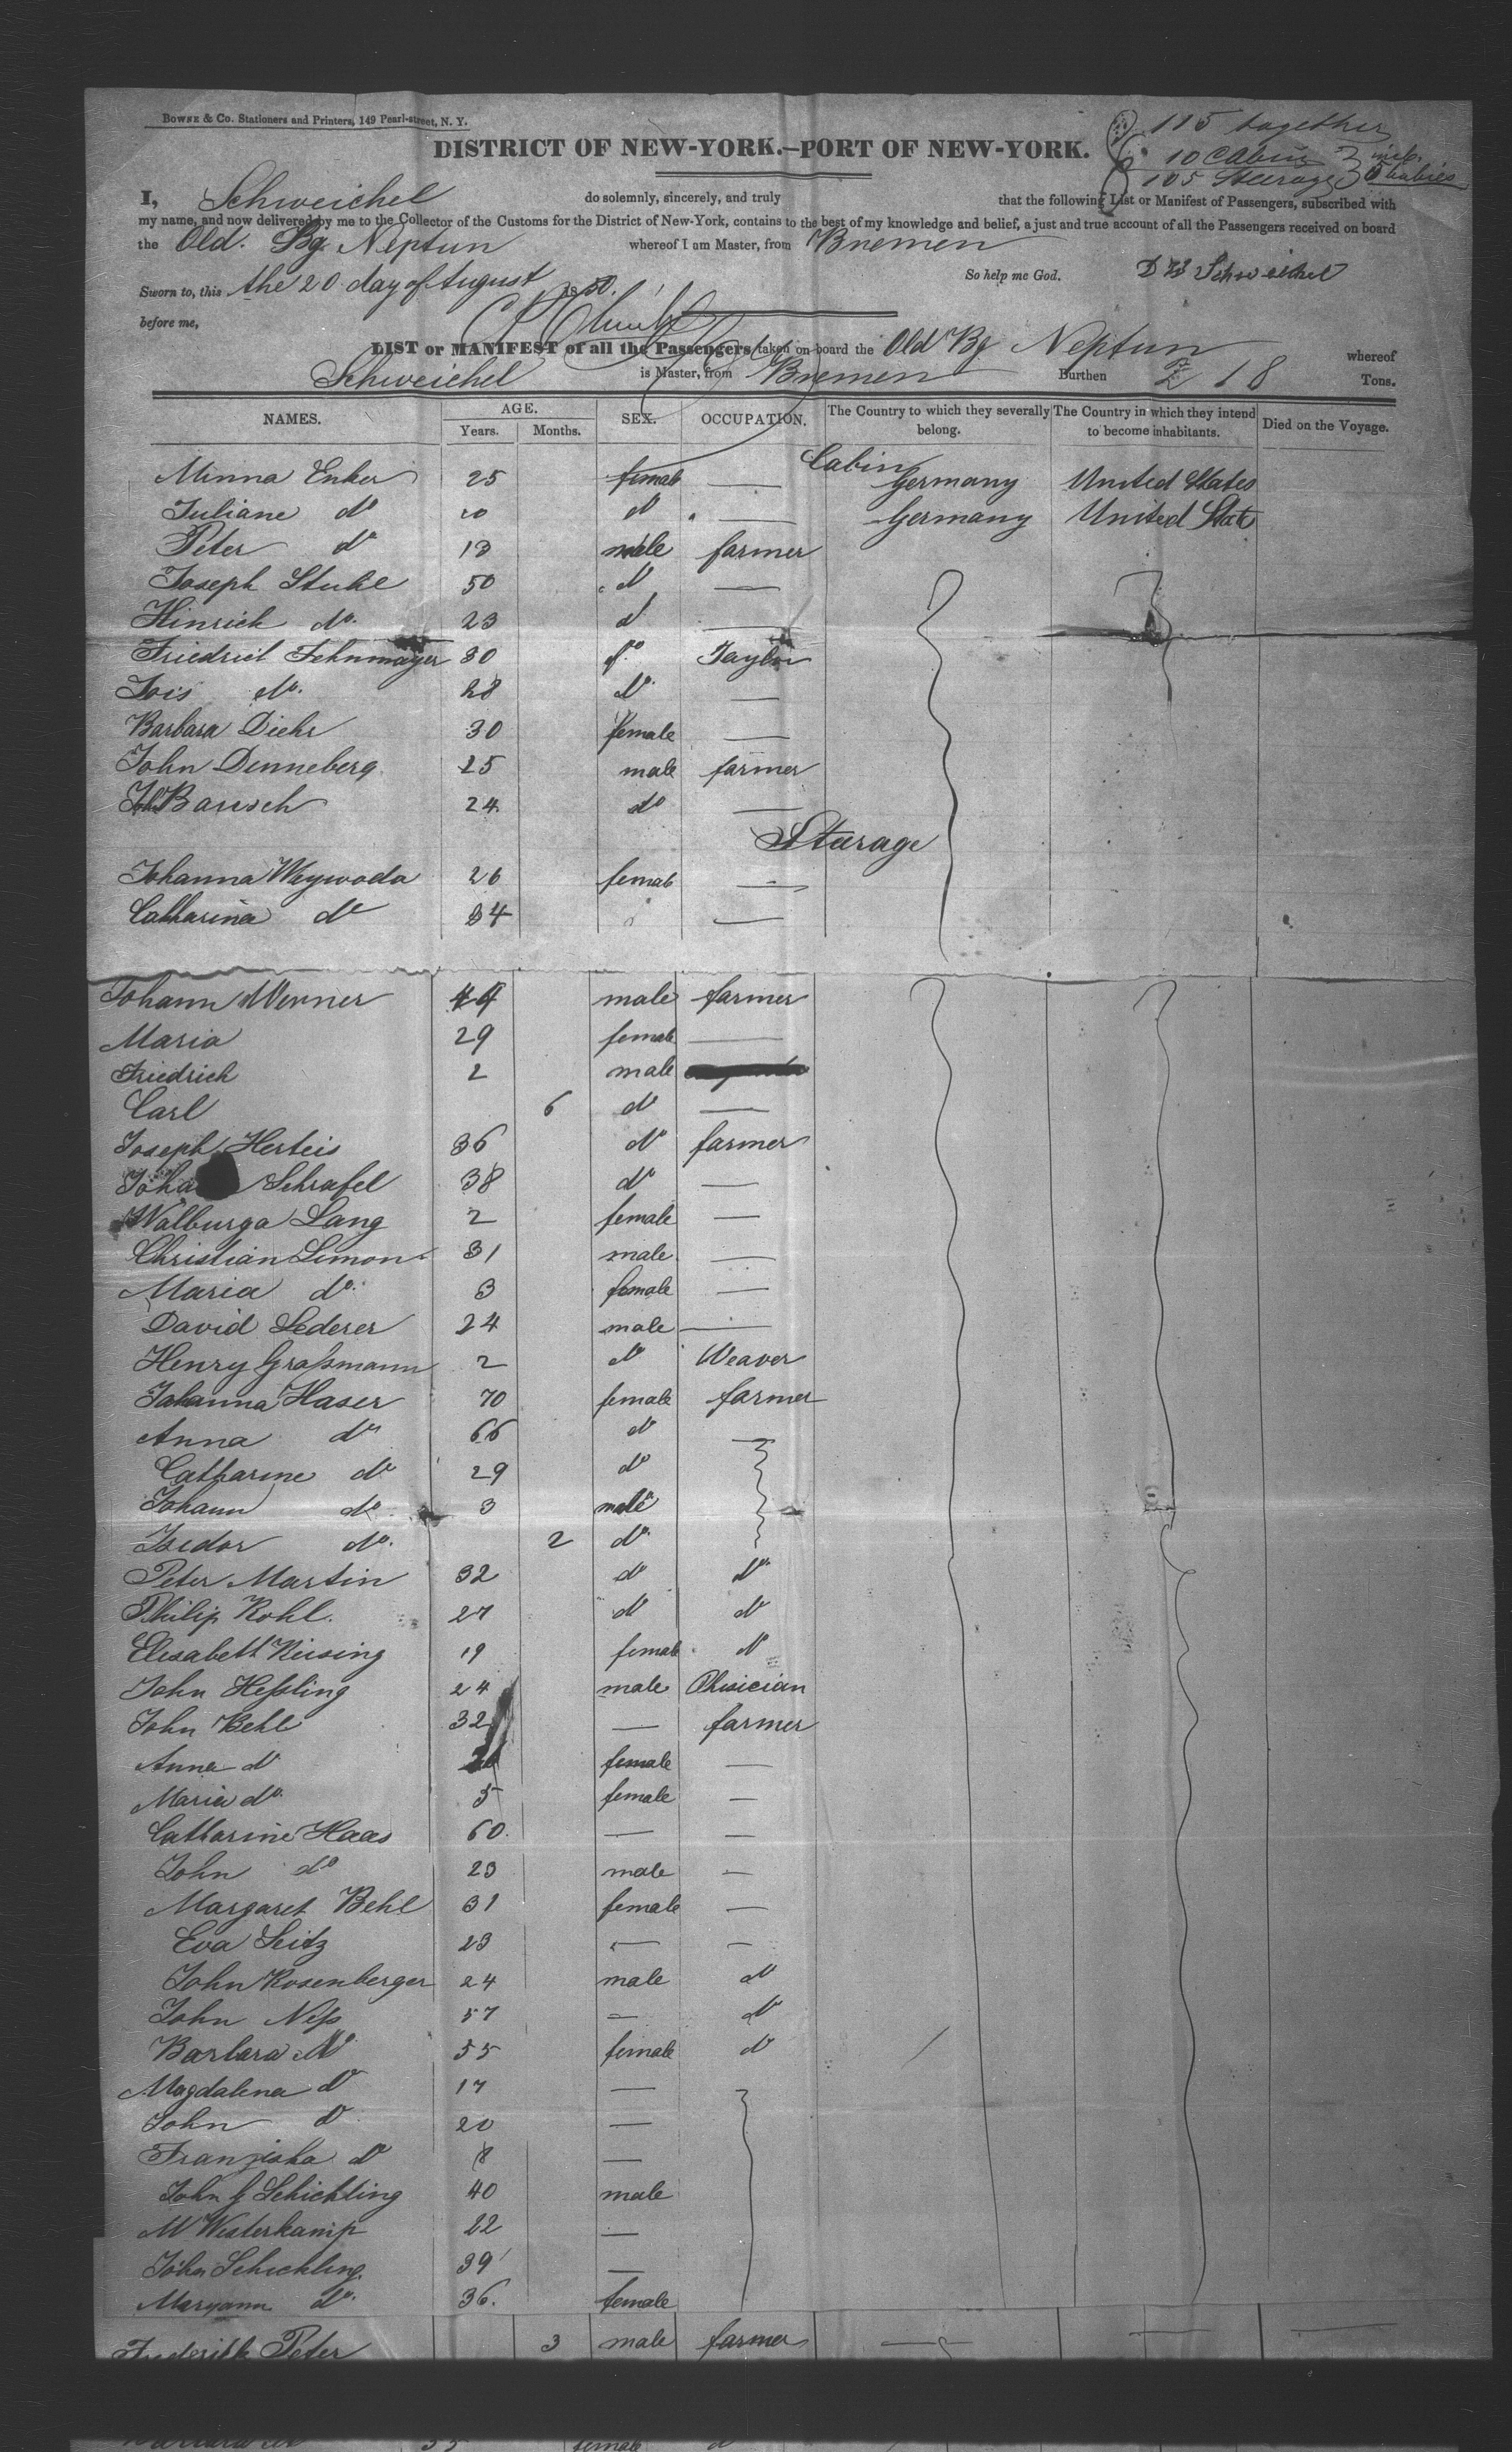 BOWNE & Co. Stationers and Printers, 149 Pearl-street, N. Y.
115 together
DISTRICT OF NEW-YORK.—PORT OF NEW-YORK.
10 Cabin
105 Steerage 5 babies
I, Schweichel do solemnly, sincerely, and truly that the following List or Manifest of Passengers, subscribed with
my name, and now delivered by me to the Collector of the Customs for the District of New-York, contains to the best of my knowledge and belief, a just and true account of all the Passengers received on board
the Old. Bg Neptun whereof I am Master, from Bremen
So help me God. Schweichel
Sworn to, this the 20 day of August 1850.
before me,
LIST or MANIFEST of all the Passengers taken on board the Old Bg Neptun whereof
Schweichel is Master, from Bremen Burthen 218 Tons.
NAMES. AGE. Years. Months. SEX. OCCUPATION. The Country to which they severally belong. The Country in which they intend to become inhabitants. Died on the Voyage.
Cabin
Minna Enker 25 female — Germany United States
Juliane do 20 do — Germany United State
Peter do 13 male farmer
Joseph Stuke 50 do —
Hinrich do. 23 do —
Friedrich Fehnmayer 30 do Taylor
do. 28 do —
Barbara Diehr 30 female —
John Denneberg 25 male farmer
Joh Bausch 24 do —
Stearage
Johanna Weywoda 26 female —
Catharina do 34 —
Johann Werner 44 male farmer
Maria 29 female —
Friedrich 2 male
Carl 6 do —
Joseph Herteis 36 do farmer
Schrafel 38 do —
Walburga Lang 2 female —
Christian Simon 31 male —
Maria do. 3 female —
David Lederer 24 male —
Henry Graßmann 2 do Weaver
Johanna Haser 70 female farmer
Anna do 66 do
Catharine do 29 do
Johann do 3 male
Isedor do. 2 do
Peter Martin 32 do do
Philip Kohl. 27 do do
Elisabeth Niesing 19 female do
John Heßling 24 male Phisician
John Behl 32 — farmer
Anna do female —
Maria do. 5 female —
Catharine Haas 60. — —
John do 23 male —
Margaret Behl 31 female —
Eva Seitz 23 — —
John Rosenberger 24 male do
John Neß 57 — do
Barbara do 55 female do
Magdalena do 17 —
John do 20 —
Franziska do 8 —
John G Schichling 40 male
M Westerkamp 22 —
John Schichling. 39 —
Maryann do. 36. female
Frederikk Peter 3 male farmer
55 female do